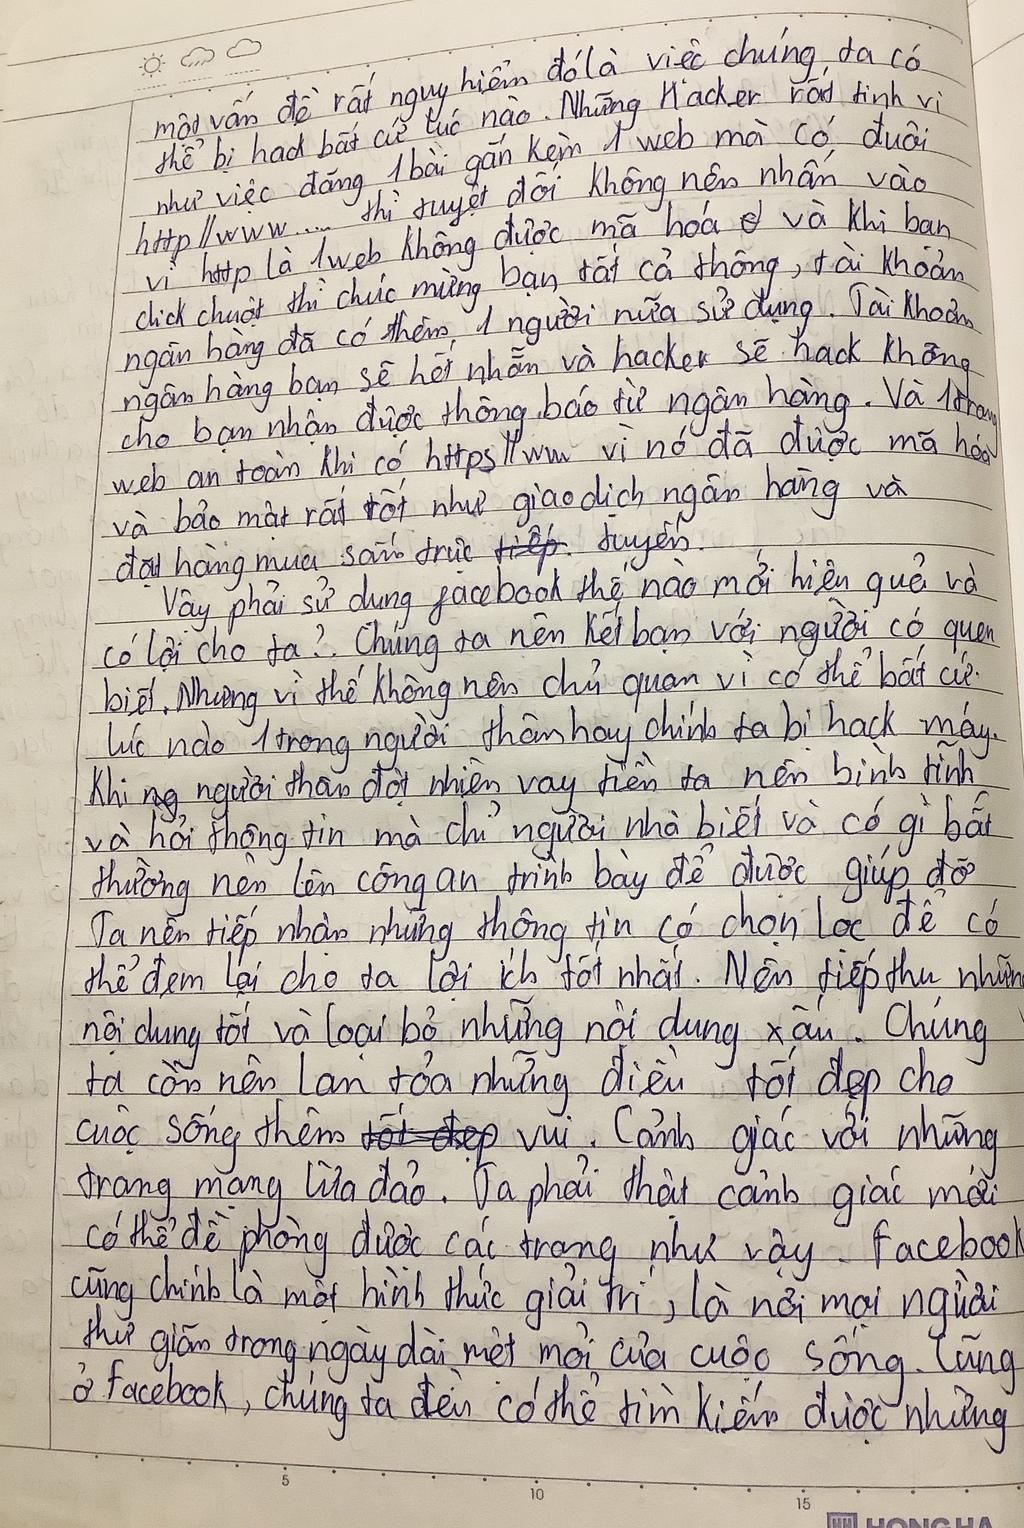 một vấn đề rất nguy hiểm đó là việc chúng ta có
thể bị hack bất cứ lúc nào. Những Hacker rất tinh vi
như việc đăng 1 bài gắn kèm 1 web mà có đuôi
http//www..... thì tuyệt đối không nên nhấn vào
vì http là 1 web không được mã hoá và khi bạn
click chuột thì chúc mừng bạn tất cả thông, tài khoản
ngân hàng đã có thêm 1 người nữa sử dụng. Tài khoản
ngân hàng bạn sẽ hết nhẵn và hacker sẽ hack không
cho bạn nhận được thông báo từ ngân hàng. Và 1 trang
web an toàn khi có https//ww vì nó đã được mã hóa
và bảo mật rất tốt như giao dịch ngân hàng và
đặt hàng mua sắm trực tiếp tuyến.
Vậy phải sử dụng facebook thế nào mới hiệu quả và
có lợi cho ta? Chúng ta nên kết bạn với người có quen
biết. Nhưng vì thế không nên chủ quan vì có thể bất cứ
lúc nào 1 trong người thân hay chính ta bị hack máy.
Khi ng người thân đột nhiên vay tiền ta nên bình tĩnh
và hỏi thông tin mà chỉ người nhà biết và có gì bất
thường nên lên công an trình bày để được giúp đỡ
Ta nên tiếp nhận những thông tin có chọn lọc để có
thể đem lại cho ta lợi ích tốt nhất. Nên tiếp thu những
nội dung tốt và loại bỏ những nội dung xấu. Chúng
ta còn nên lan tỏa những điều tốt đẹp cho
cuộc sống thêm tốt đẹp vui. Cảnh giác với những
trang mạng lừa đảo. Ta phải thật cảnh giác mới
có thể đề phòng được các trang như vậy. Facebook
cũng chính là một hình thức giải trí, là nơi mọi người
thư giãn trong ngày dài mệt mỏi của cuộc sống. Cũng
ở Facebook, chúng ta đều có thể tìm kiếm được những
5
10
15
HONG HA